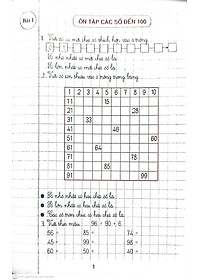 Bài 1
ÔN TẬP CÁC SỐ ĐẾN 100
1. Viết số có một chữ số thích hợp vào ô trống
0 1
Số nhỏ nhất có một chữ số là:
Số lớn nhất có một chữ số là:
2. Viết số còn thiếu vào ô trong bảng
1 2 3 4 5 6 7 8 9 10
11 15
21 28
31 33
41 46
51 60
61 64
71 78
81 85
91 99
Số nhỏ nhất có hai chữ số là:
Số lớn nhất có hai chữ số là:
Các số tròn chục có hai chữ số là:
3. Viết theo mẫu: 96 = 90 + 6
56 = 85 = 74 =
45 = 99 = 98 =
60 = 50 = 40 =
1